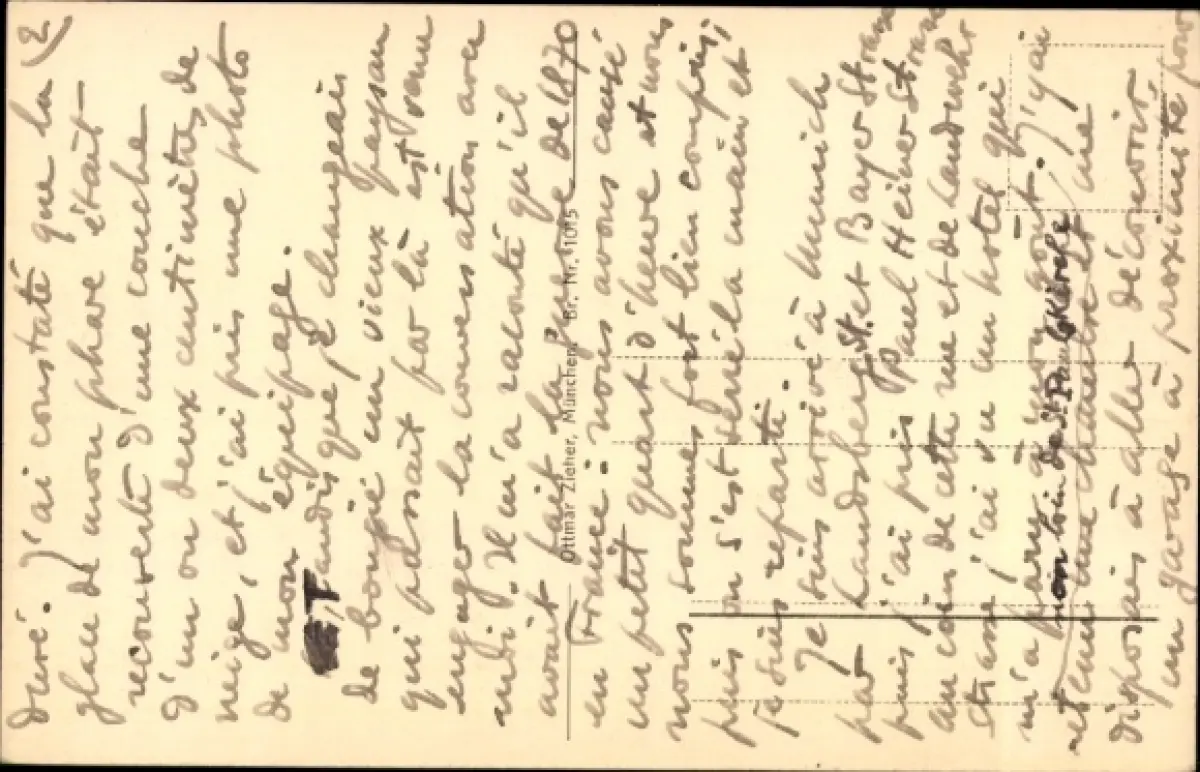 (2
duré. J'ai constaté que la
glace de mon phare était
recouverte d'une couche
d'un ou deux centimètres de
neige, et j'ai pris une photo
de mon équipage.
Tandis que je changeais
de bougie un vieux paysan
qui passait par là est venu
engager la conversation avec
moi. Il m'a raconté qu'il
avait fait la guerre de 1870
Ottmar Zieher, München. Br. Nr. 1015
en France. nous avons causé
un petit quart d'heure et nous
nous sommes fort bien compris,
puis on s'est serré la main et
je suis reparti.
Je suis arrivé à Munich
par Landsberg St. et Bayer Strasse
puis j'ai pris Paul Heise Strasse
au coin de cette rue et de Landwehr
strasse j'ai vu un hotel qui
m'a paru à mon goût. J'y ai
non loin de St Paul Kirche
retenu une chambre et me
disposais à aller découvrir
un garage à proximité pour